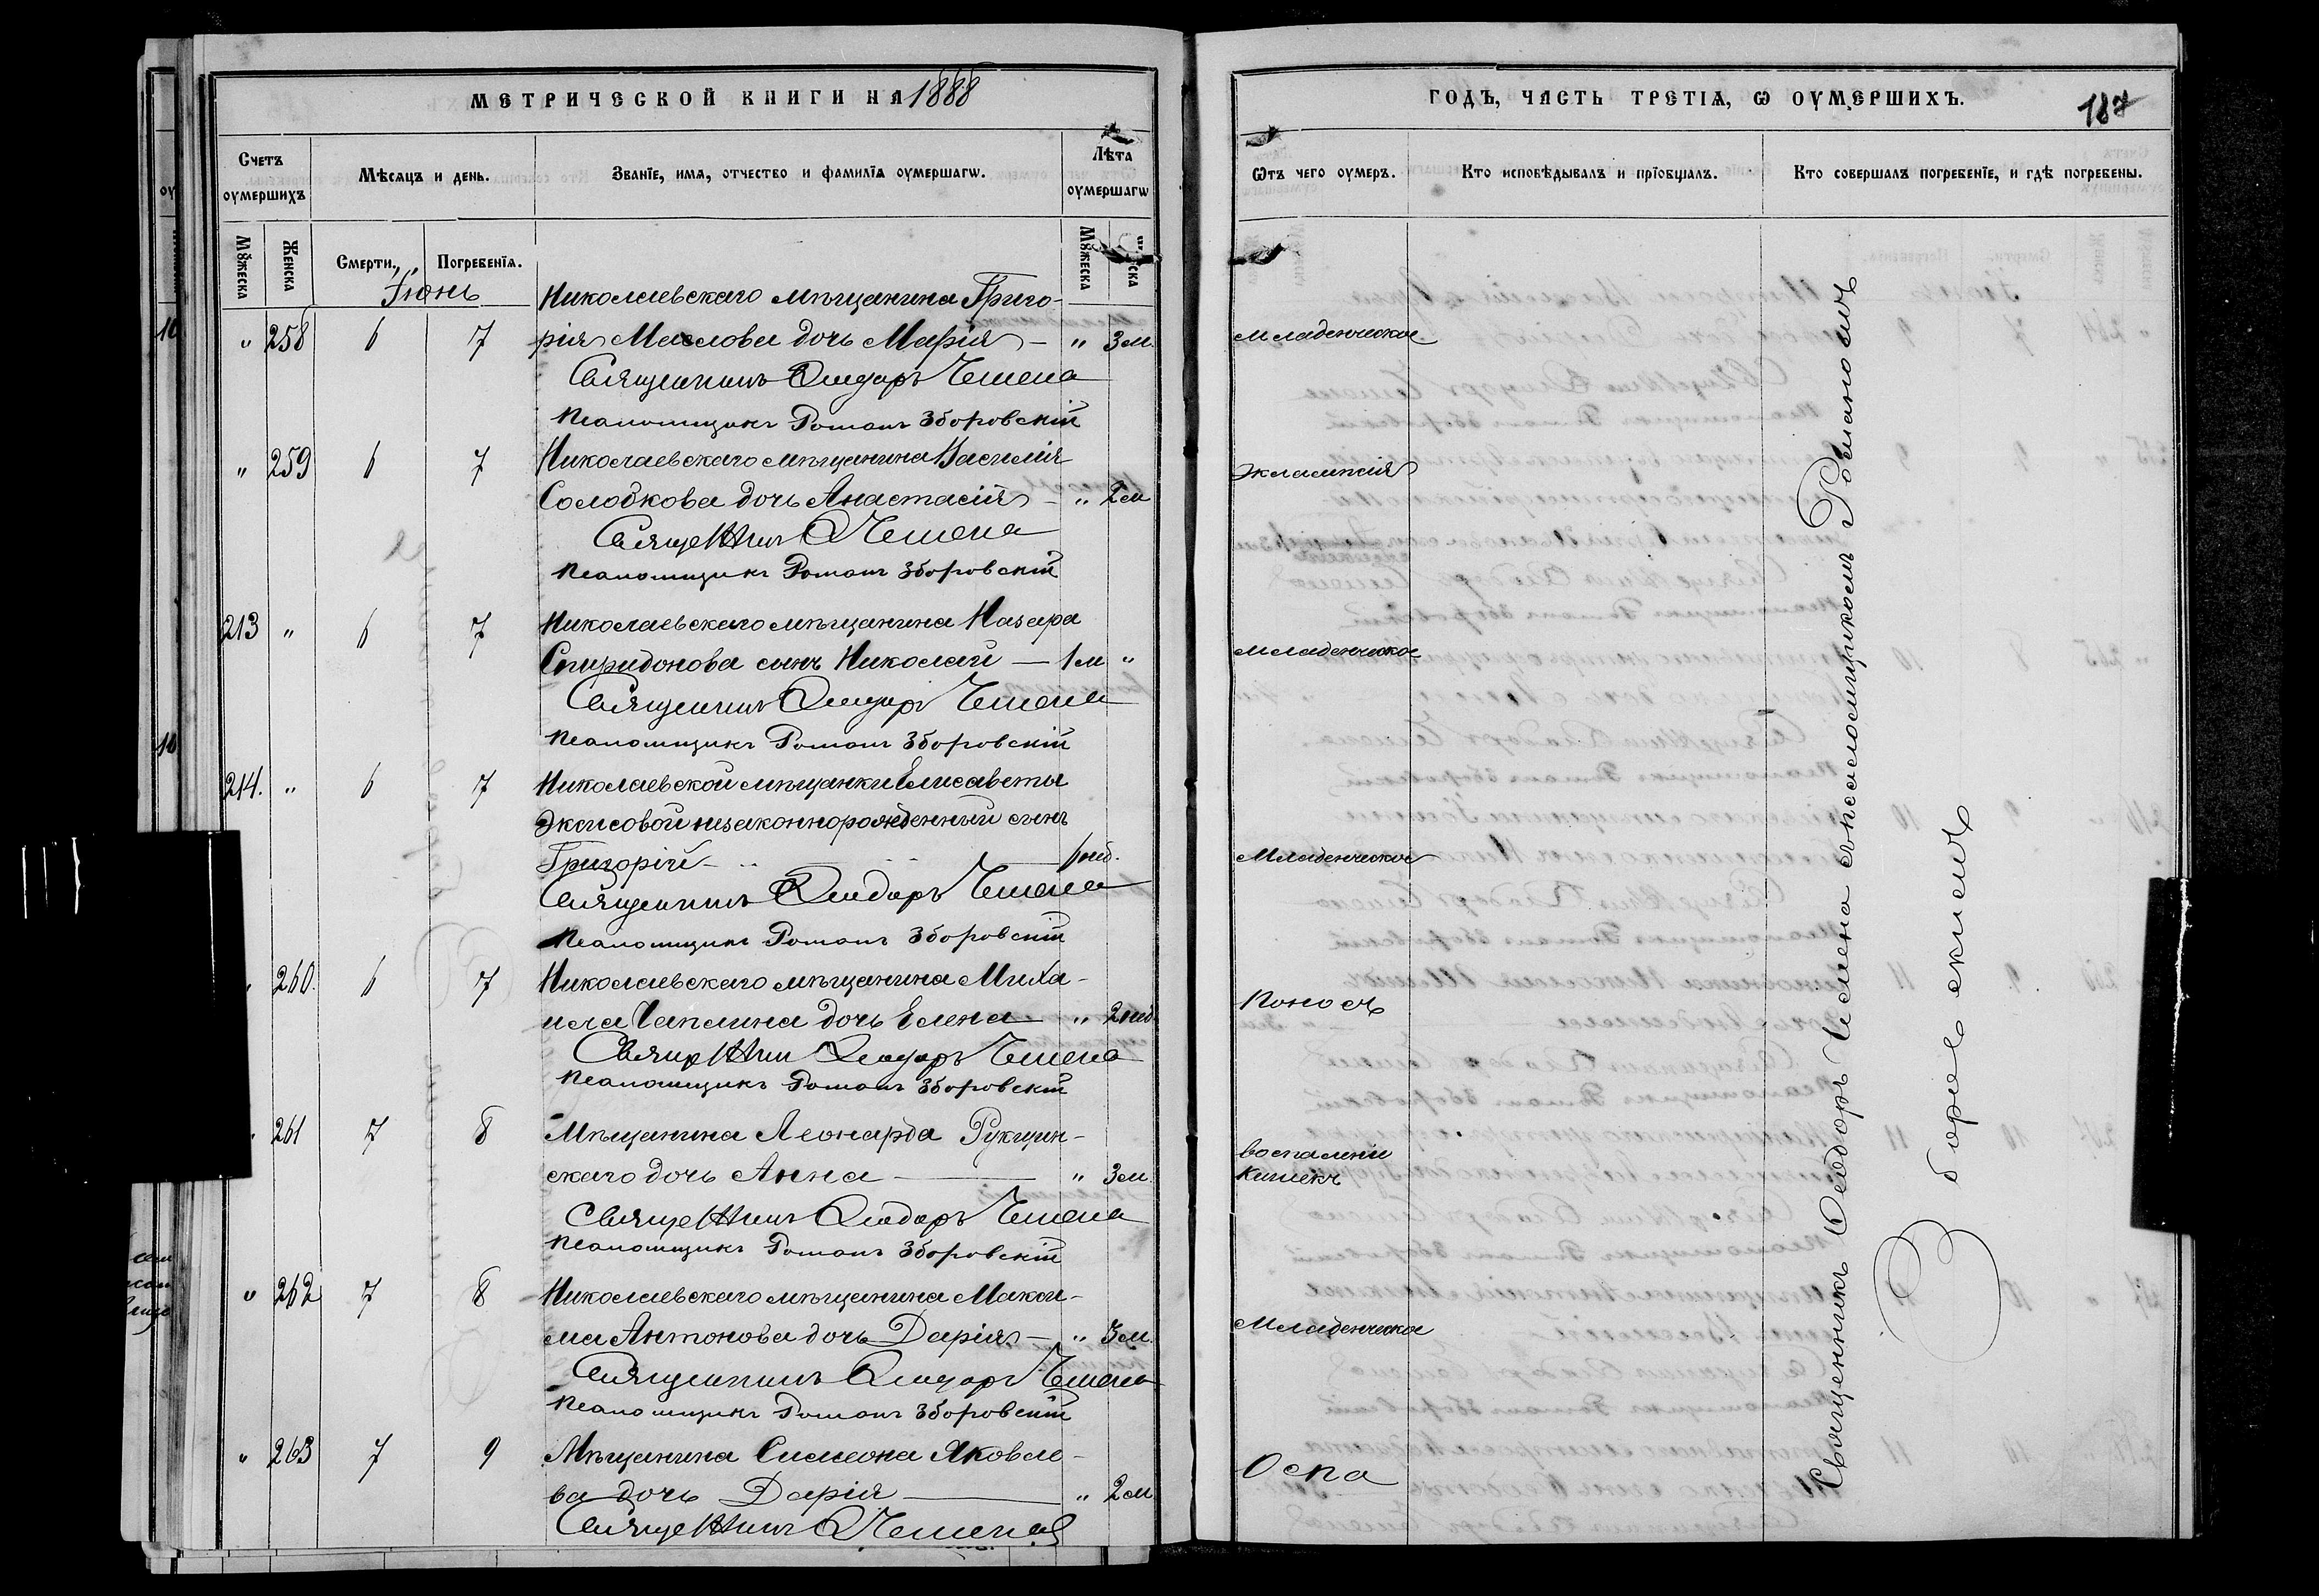 МЕТРИЧЕСКОЙ КНИГИ НА 1888
Счетъ оумершихъ
Мѣсяцъ и день.
Званїе, имя, отчество и фамилїя оумершагѡ.
Лѣта оумершагѡ
Мꙋжеска
Женска
Смерти.
Погребенїя.
Мꙋжеска
Іюнь
Николаевскаго мѣщанина Григо-
" 258 6 7 рія Маслова дочь Марія — " 3 м.
Священникъ Ѳеодоръ Чемена
Псаломщикъ Романъ Зборовскій
" 259 6 7 Николаевскаго мѣщанина Василія
Солодкова дочь Анастасія — " 2 м
Священникъ Ѳ Чемена
Псаломщикъ Романъ Зборовскій
213 " 6 7 Николаевскаго мѣщанина Назара
Спиридонова сынъ Николай — 1 м "
Священникъ Ѳеодоръ Чемена
Псаломщикъ Романъ Зборовскій
214. " 6 7 Николаевской мѣщанки Елисаветы
незаконнорожденный сынъ
Григорій — нед.
Священникъ Ѳеодоръ Чемена
Псаломщикъ Романъ Зборовскій
260. 6 7 Николаевскаго мѣщанина Миха-
ила Чаплина дочь Елена — " 2 нед.
Священникъ Ѳеодоръ Чемена
Псаломщикъ Романъ Зборовскій
261 7 8 Мѣщанина Леонарда
скаго дочь Анна — " 3 м.
Священникъ Ѳеодоръ Чемена
Псаломщикъ Романъ Зборовскій
" 262 7 8 Николаевскаго мѣщанина Макси-
ма Антонова дочь Дарія — " 3 м.
Священникъ Ѳеодоръ Чемена
Псаломщикъ Романъ Зборовскій
" 263 7 9 Мѣщанина Симеона Яковле-
ва дочь Дарія — " 2 м.
Священникъ Ѳ Чемена
ГОДЪ, ЧАСТЬ ТРЕТІЯ, Ѡ ОУМЕРШИХЪ.
187
Ѿтъ чего оумеръ.
Кто исповѣдывалъ и прїобщалъ.
Кто совершалъ погребенїе, и гдѣ погребены.
младенческое
эклампсія
младенческое
Младенческое
Поносъ
воспаленіе
кишекъ
Младенческое
Оспа
Священникъ Ѳеодоръ Чемена съ псаломщикомъ Романомъ
Зборовскимъ